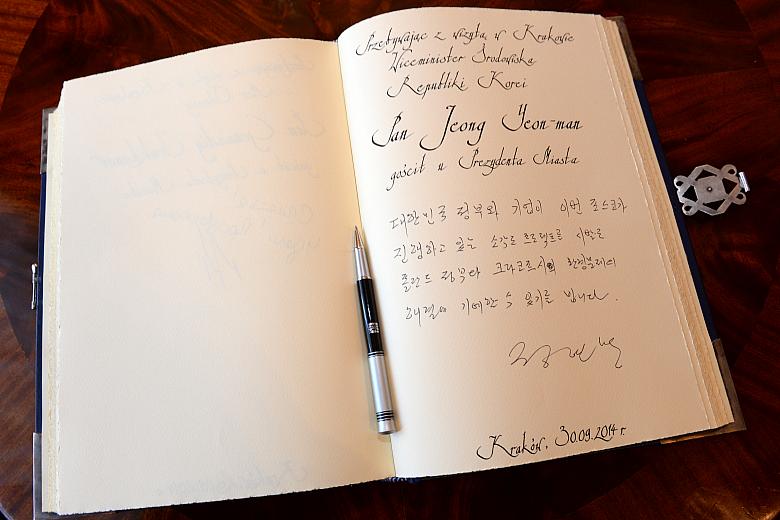 Przebywając z wizytą w Krakowie
Wiceminister Środowiska
Republiki Korei
Pan Jeong Yeon-man
gościł u Prezydenta Miasta
대한민국 정부와 기업이 이번 포스코가
진행하고 있는 소각로 프로젝트를 시발로
폴란드 정부와 크라코프시의 환경문제의
해결에 기여할 수 있기를 빕니다.
정연만
Kraków, 30.09.2014 r.